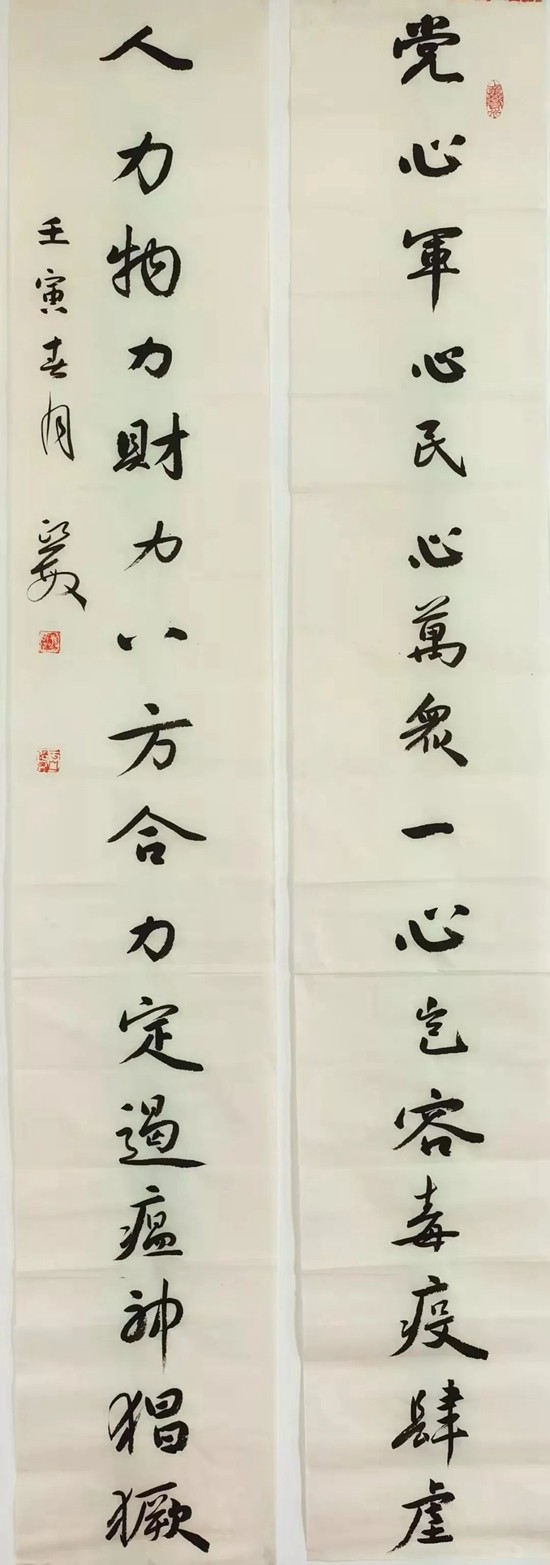 党心軍心民心萬眾一心岂容毒疫肆虐
人力物力財力八方合力定遏瘟神猖獗
壬寅春月